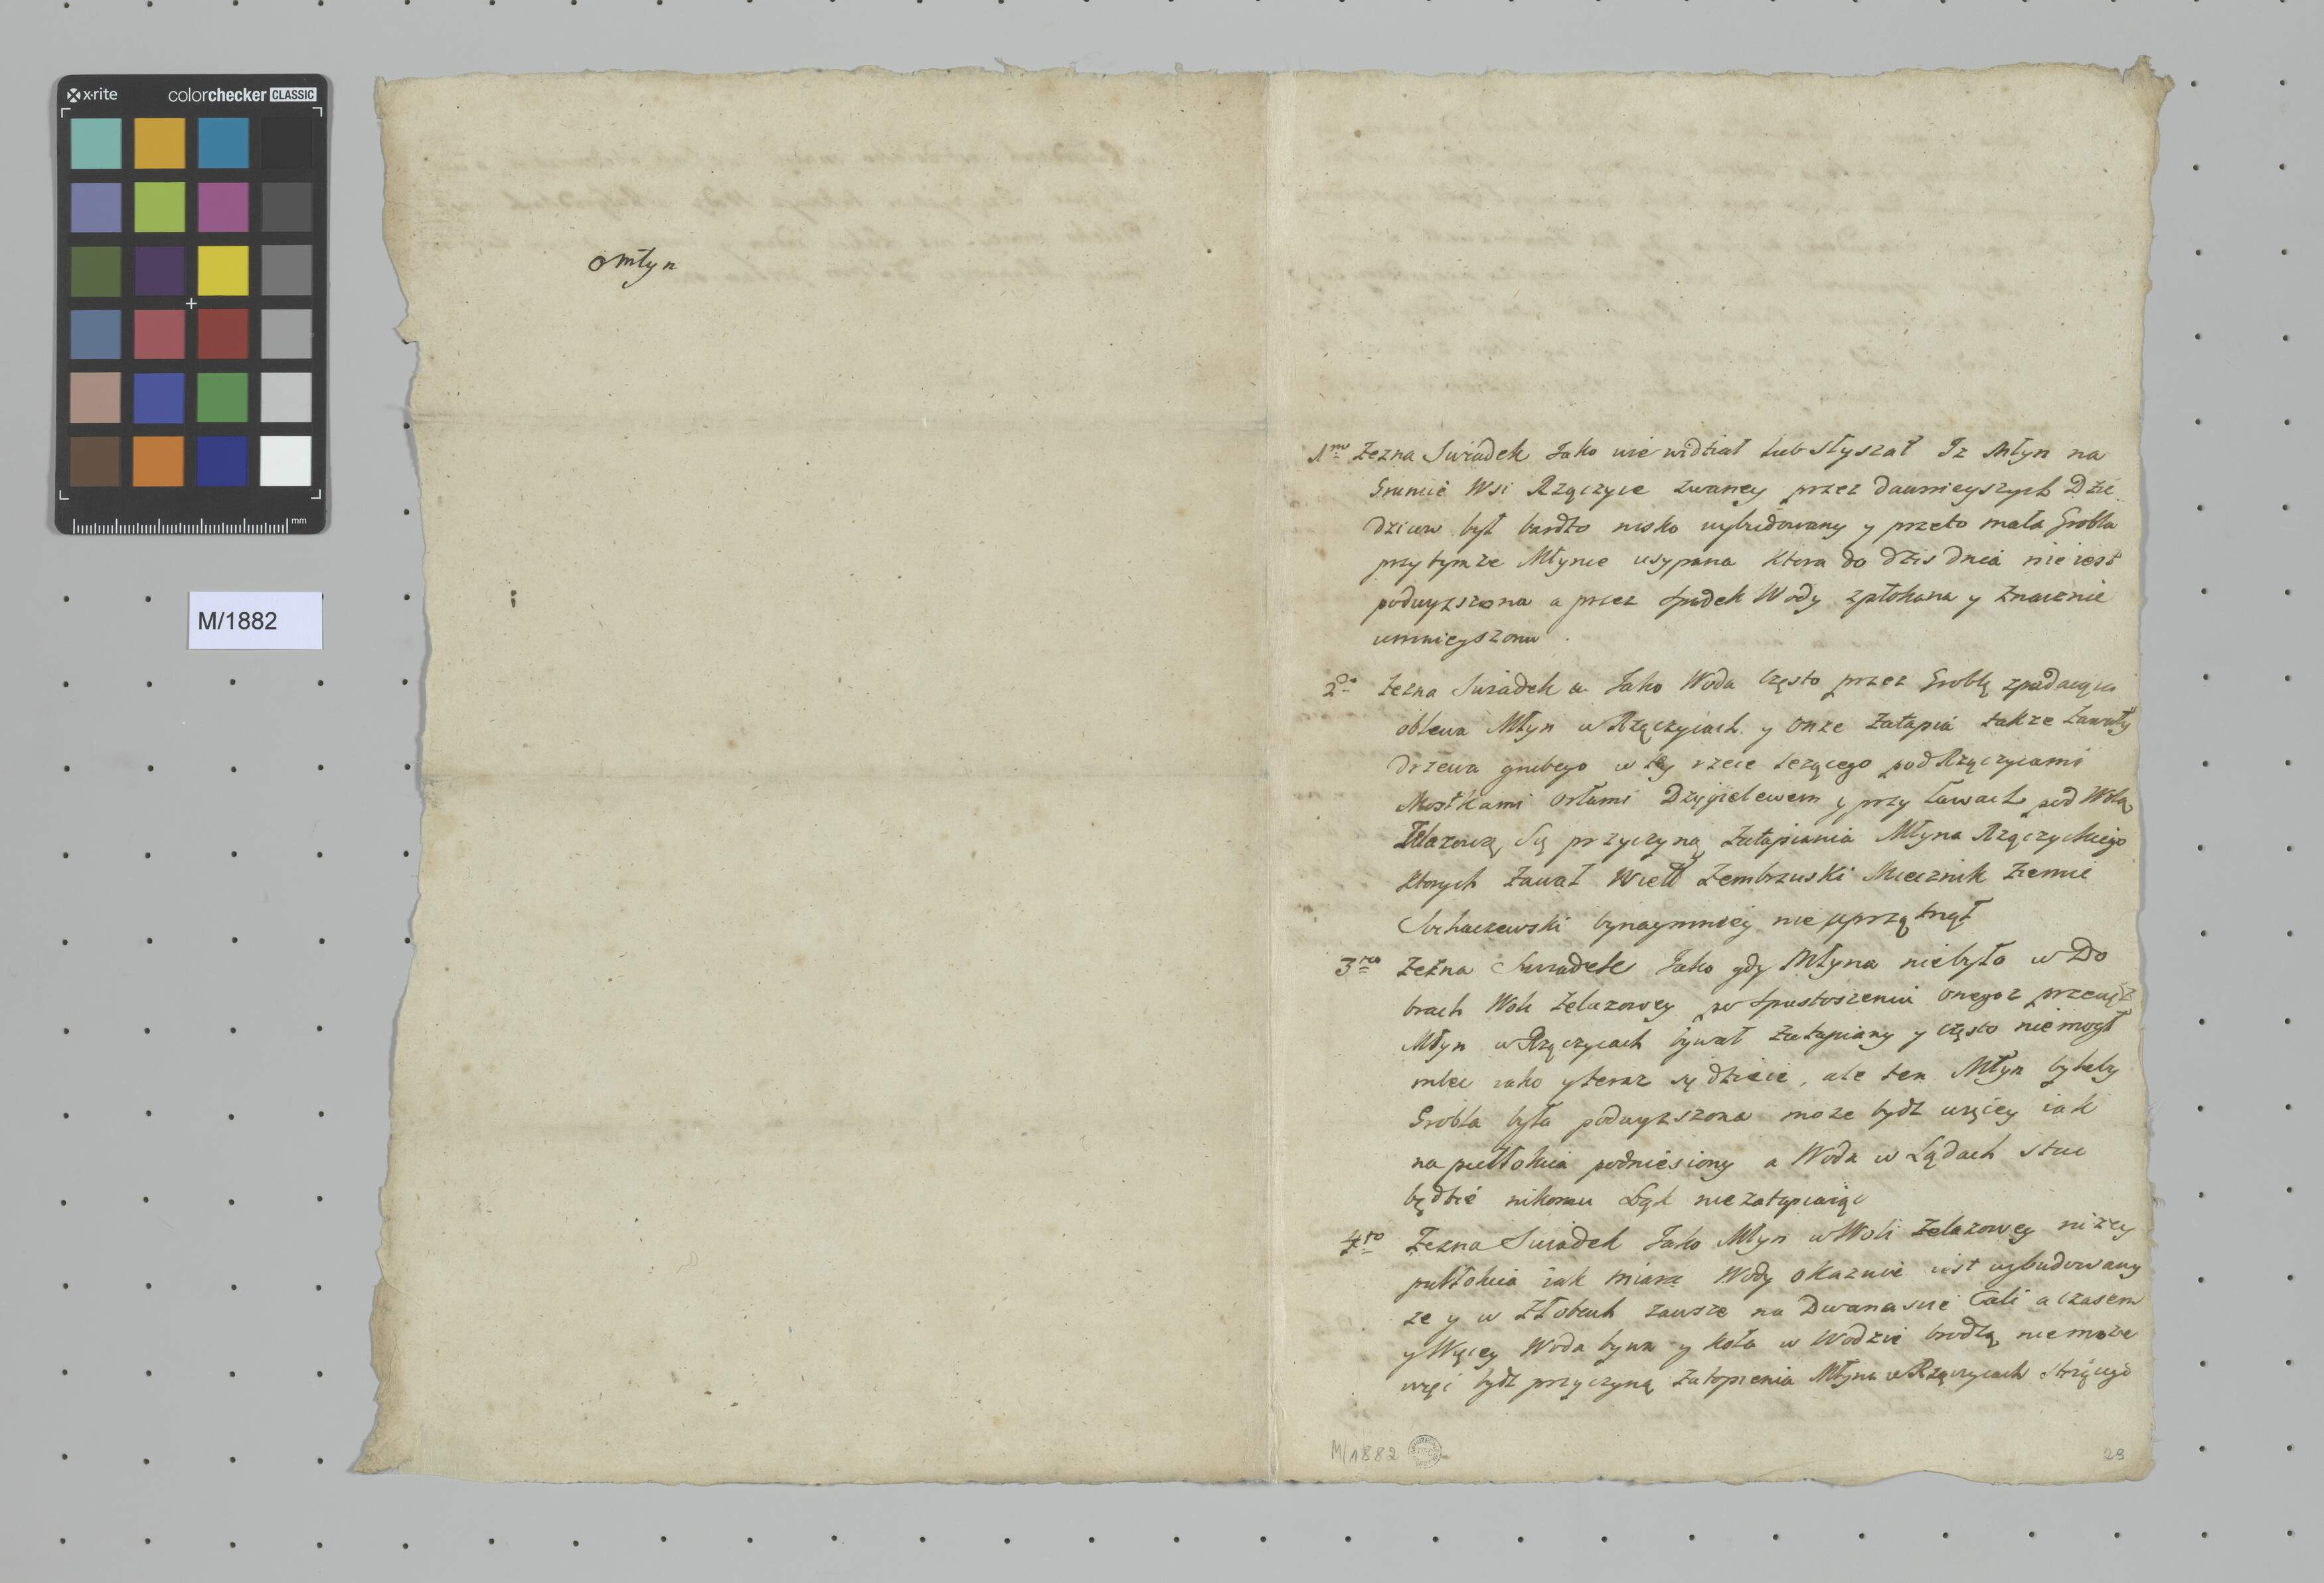 x·rite colorchecker CLASSIC
mm
M/1882
o młyn
1mo Zezna Swiadek Jako wie widział lub słyszał Iz Młyn na
Gruncie Wsi Rzączyce zwaney przez dawnieyszych Dzie
dzicow był bardzo nisko wybudowany y przeto mała Grobla
przy tymze Młynie usypana ktora do dzis dnia nie iest
podwyzszona a przez spadek Wody zpłokana y znacznie
umnieyszona.
2do Zezna Swiadek Jako Woda często przez Groblę zpadaiąca
oblewa Młyn w Rzączycach y onze zatapia takze zawały
drzewa grubego w tey rzece lezącego pod Rzączycami
Mostkami Orłami Dzygielewem y przy Ławach pod Wolą
Zelazową Są przyczyną zatapiania Młyna Rzączyckiego
ktorych zawał Wiel Zembrzuski Miecznik Ziemie
Sochaczewski bynaymniey nie uprzątnął
3tio Zezna Swiadek Jako gdy Młyna niebyło w Do
brach Woli Zelazowey po spustoszeniu onegoz przecięz
Młyn w Rzączycach bywał zatapiany y często niemogł
mleć iako y teraz się dzieie, ale ten Młyn byleby
Grobla była podwyzszona moze bydz więcey iak
na pułłokcia podniesiony a Woda w Lądach stać
będzie nikomu Łąk nie zatapiaiąc
4to Zezna Swiadek Jako Młyn w Woli Zelazowey nizey
pułłokcia iak miara Wody okazuie iest wybudowany
ze y w Złobach zawsze na Dwanascie Cali a czasem
y Więcey Woda bywa y koła w Wodzie brodzą nie moze
więc bydz przyczyną zatopienia Młyna w Rzączycach stoiącego
M/1882
29